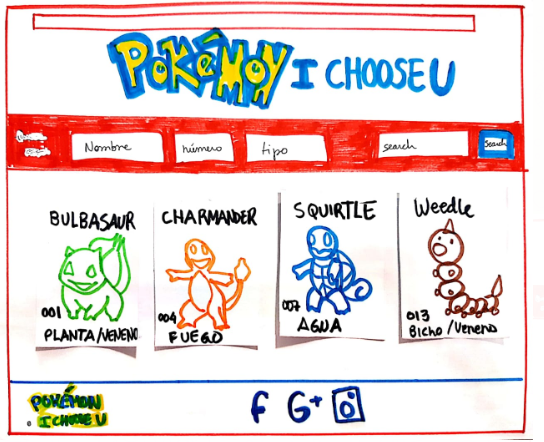 POKÉMON I CHOOSE U
Nombre número tipo search Search
BULBASAUR
001
PLANTA/VENENO
CHARMANDER
004
FUEGO
SQUIRTLE
007
AGUA
Weedle
013
Bicho/Veneno
POKÉMON
I CHOOSE U
f G+